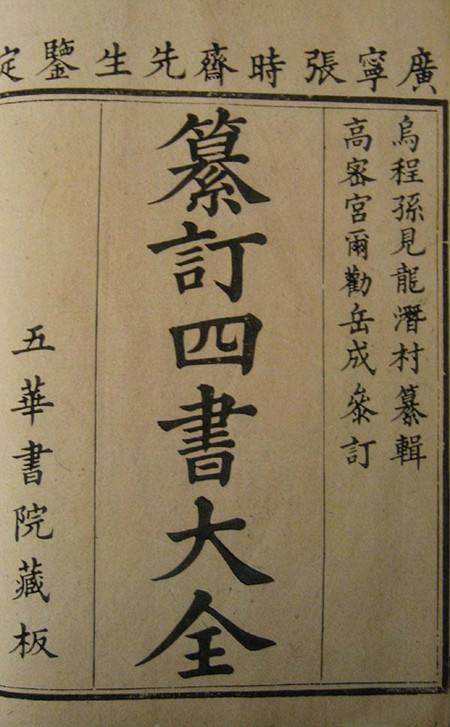 廣寧張時齋先生鑒定
烏程孫見龍潛村纂輯
高密宮爾勸岳成叅訂
纂訂四書大全
五華書院藏板